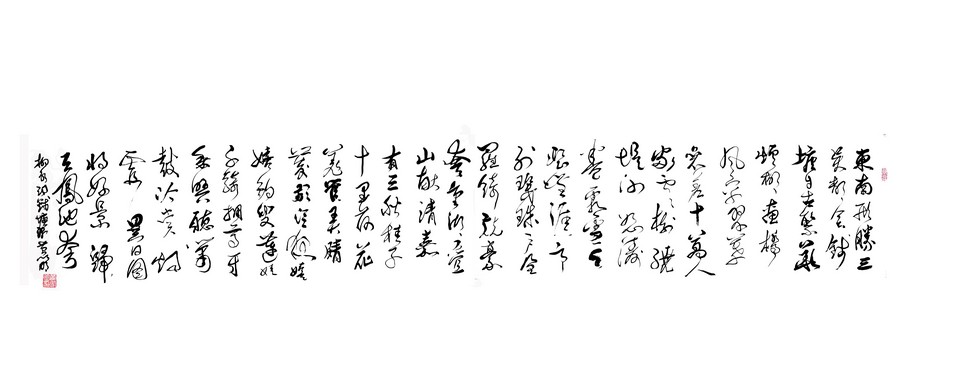 東南形勝三
吳都會錢
塘自古繁華
煙柳畫橋
風簾翠幕
參差十萬人
家雲樹繞
堤沙怒濤
卷霜雪天
塹無涯市
列珠璣戶盈
羅綺競豪
奢重湖疊
巘清嘉
有三秋桂子
十里荷花
羌管弄晴
菱歌泛夜嬉
嬉釣叟蓮娃
千騎擁高牙
乘醉聽簫
鼓吟賞煙
霞異日圖
將好景歸
去鳳池誇
柳永詞錢塘